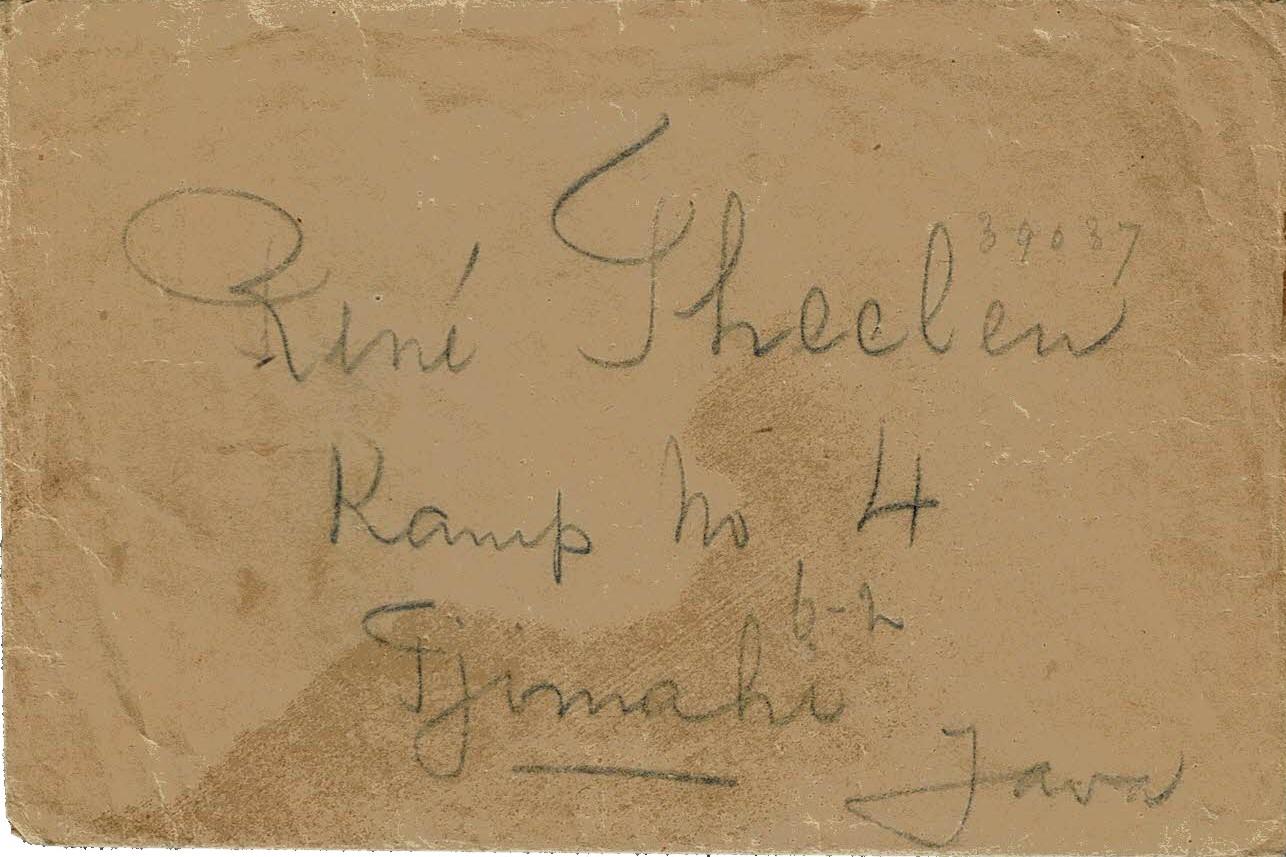 39037
René Theelen
Kamp No 4
6-2
Tjimahi
Java